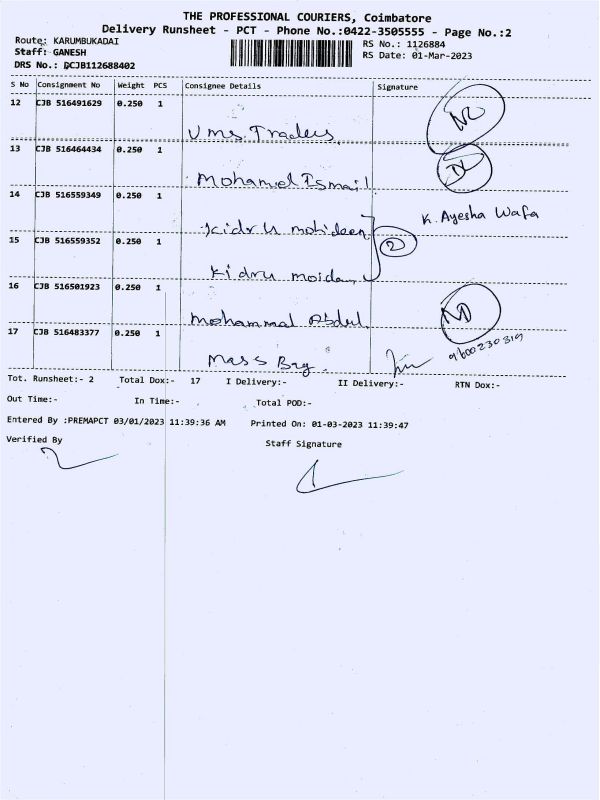 THE PROFESSIONAL COURIERS, Coimbatore
Delivery Runsheet - PCT - Phone No.:0422-3505555 - Page No.:2
Route: KARUMBUKADAI
RS No.: 1126884
Staff: GANESH
RS Date: 01-Mar-2023
DRS No.: DCJB112688402
S No Consignment No Weight PCS Consignee Details Signature
12 CJB 516491629 0.250 1
Ums Traders
13 CJB 516464434 0.250 1
Mohamed Ismail
14 CJB 516559349 0.250 1
K. Ayesha Wafa
Kidru mohideen
15 CJB 516559352 0.250 1
2
Kidru moiden
16 CJB 516501923 0.250 1
Mohammad Abdul
ND
17 CJB 516483377 0.250 1
Mass Brg.
9600230319
Tot. Runsheet:- 2 Total Dox:- 17 I Delivery:- II Delivery:- RTN Dox:-
Out Time:- In Time:- Total POD:-
Entered By :PREMAPCT 03/01/2023 11:39:36 AM Printed On: 01-03-2023 11:39:47
Verified By
Staff Signature